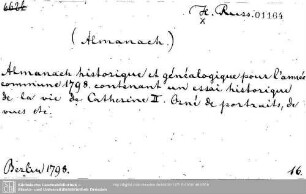 6626
H. Russ. 01164
x
(Almanach.)
Almanach historique et généalogique pour l'année
commune 1798, contenant un essai historique
de la vie de Catherine II. Orné de portraits, de
vues etc.
Berlin 1798.
16.
Sächsische Landesbibliothek -
Staats- und Universitätsbibliothek Dresden